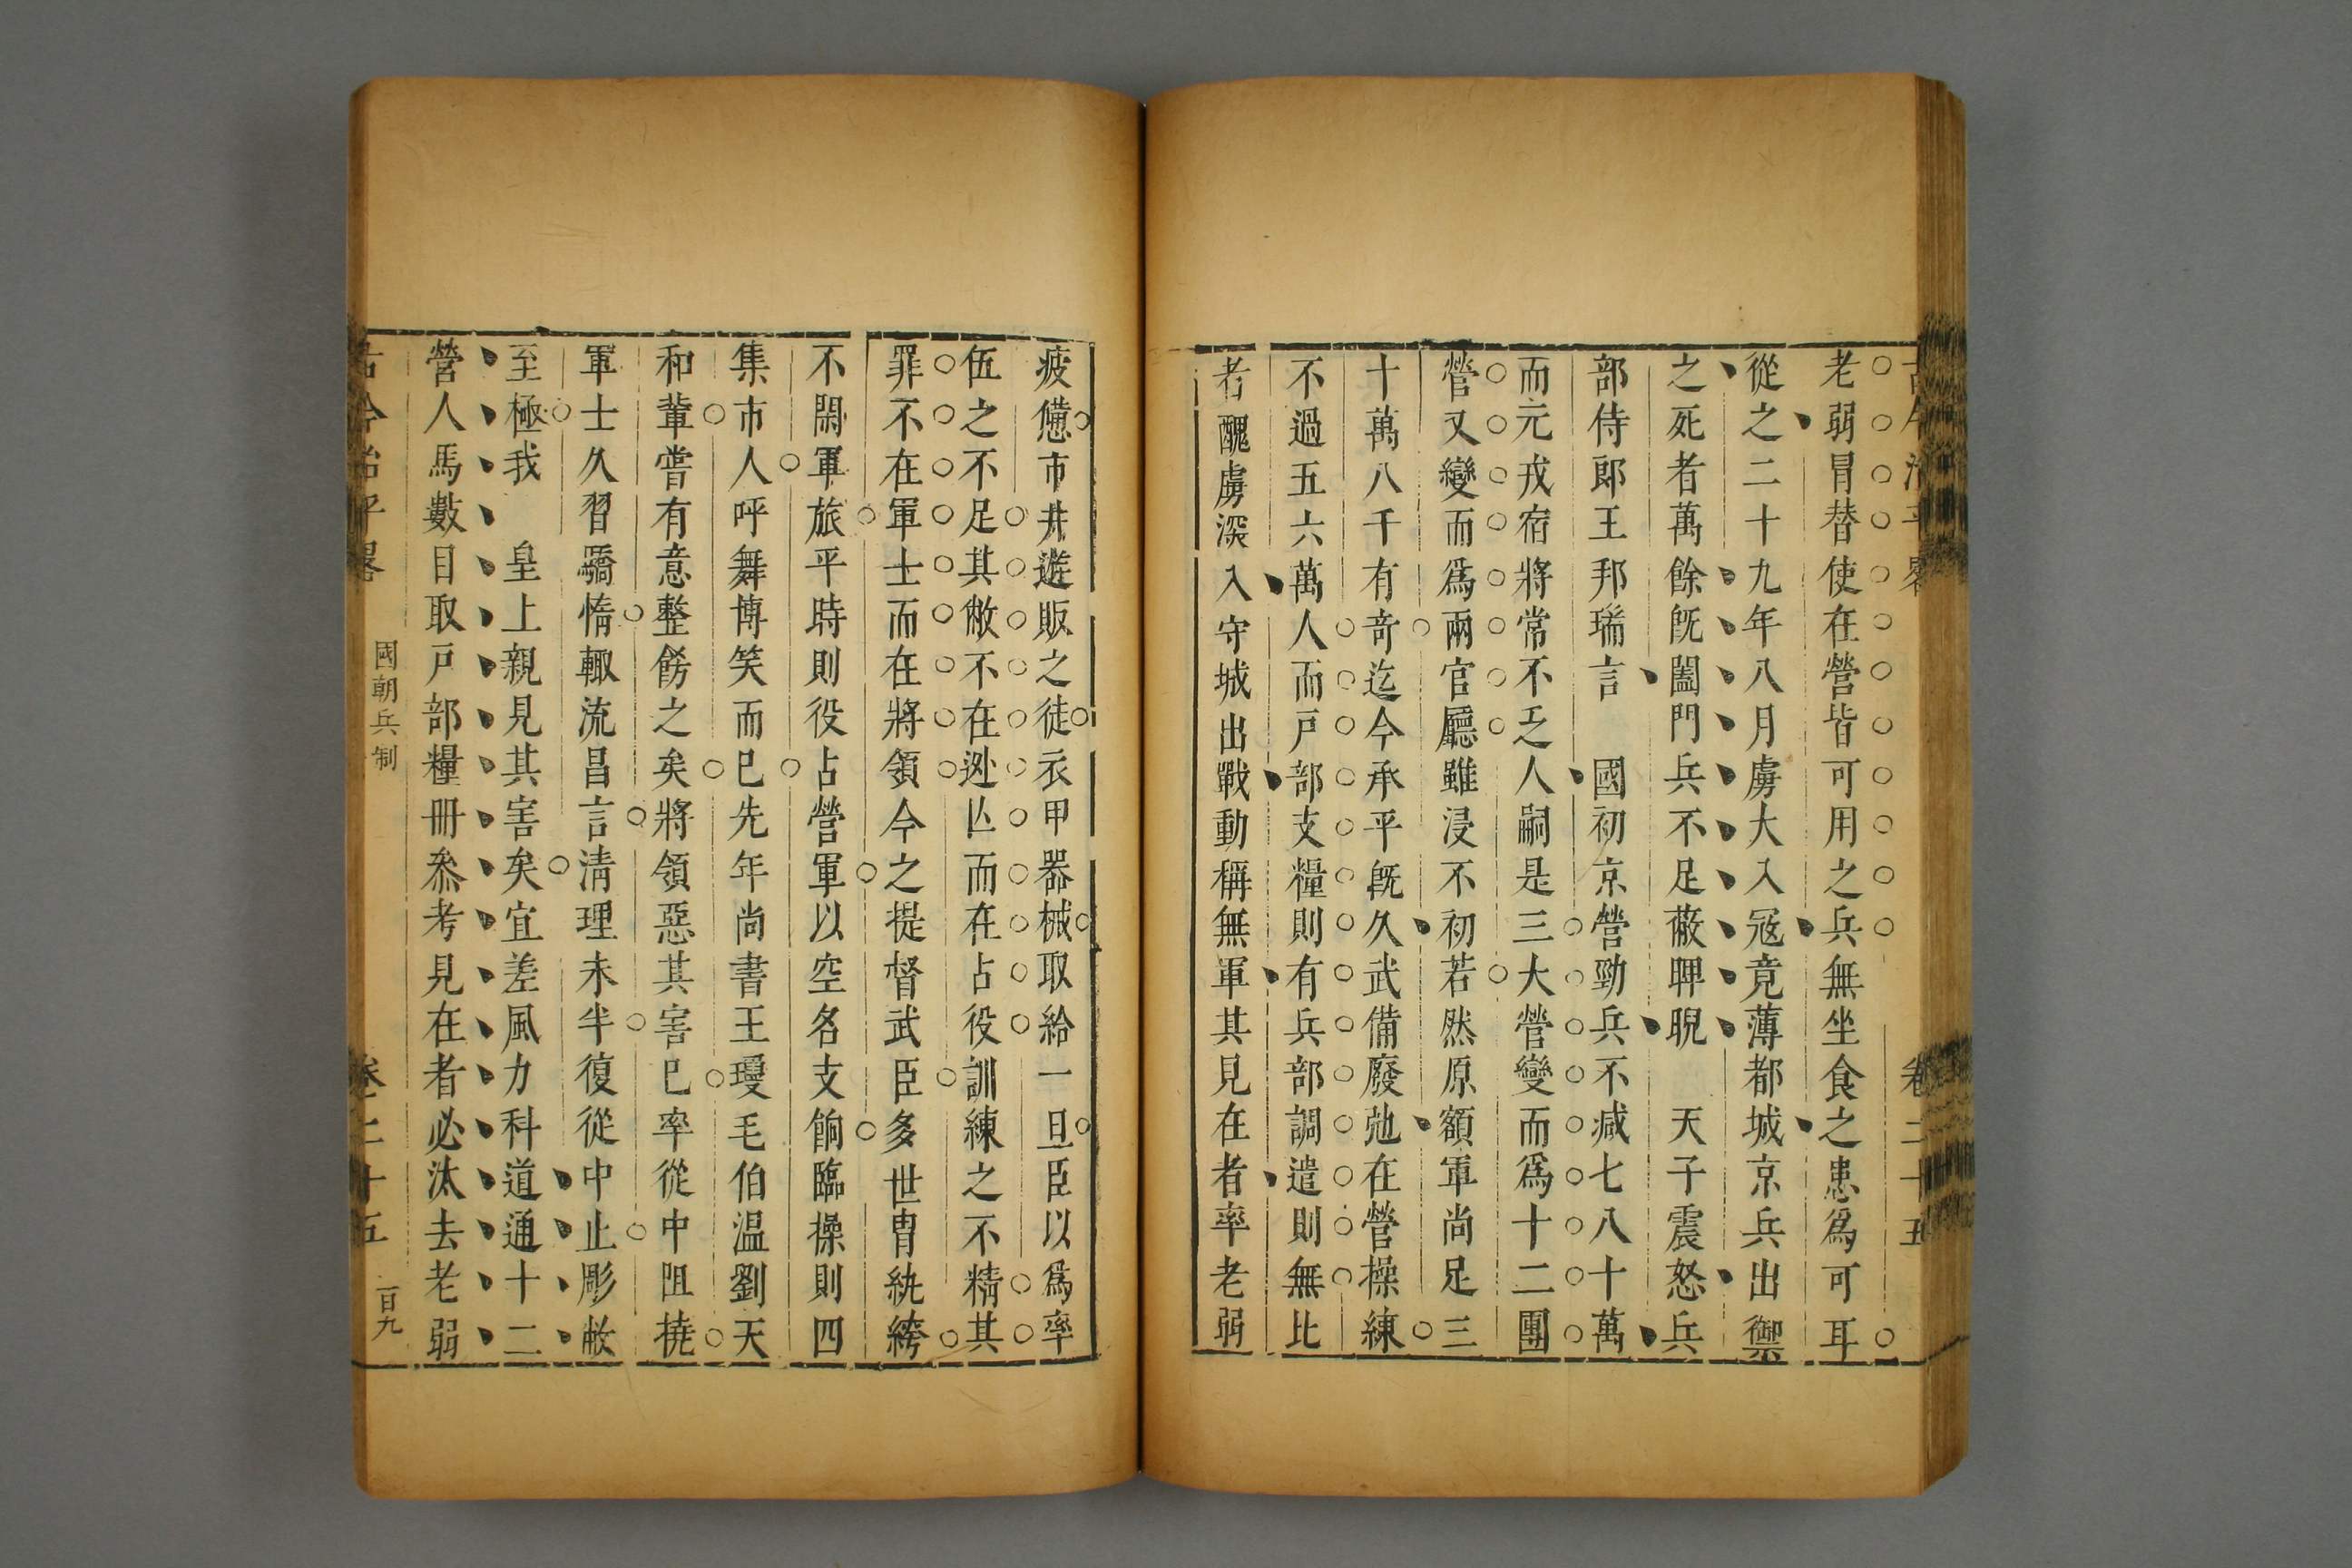 古今治平畧 卷二十五
老弱冒替使在營皆可用之兵無坐食之患爲可耳
從之二十九年八月虜大入寇竟薄都城京兵出禦
之死者萬餘旣闔門兵不足蔽睥睨 天子震怒兵
部侍郎王邦瑞言 國初京營勁兵不减七八十萬
而元戎宿將常不乏人嗣是三大營變而爲十二團
營又變而爲兩官廳雖浸不初若然原額軍尚足三
十萬八千有奇迄今承平旣久武備廢弛在營操練
不過五六萬人而戸部支糧則有兵部調遣則無比
者醜虜深入守城出戰動稱無軍其見在者率老弱
疲憊市井遊販之徒衣甲器械取給一旦臣以爲率
伍之不足其敝不在逃亾而在占役訓練之不精其
罪不在軍士而在將領今之提督武臣多世胄紈綺
不閑軍旅平時則役占營軍以空名支餉臨操則四
集市人呼舞博笑而已先年尚書王瓊毛伯温劉天
和輩嘗有意整飭之矣將領惡其害已率從中阻撓
軍士久習驕惰輙流昌言淸理未半復從中止彫敝
至極我 皇上親見其害矣宜差風力科道通十二
營人馬數目取戸部糧冊叅考見在者必汰去老弱
古今治平畧 國朝兵制 卷二十五 一百九